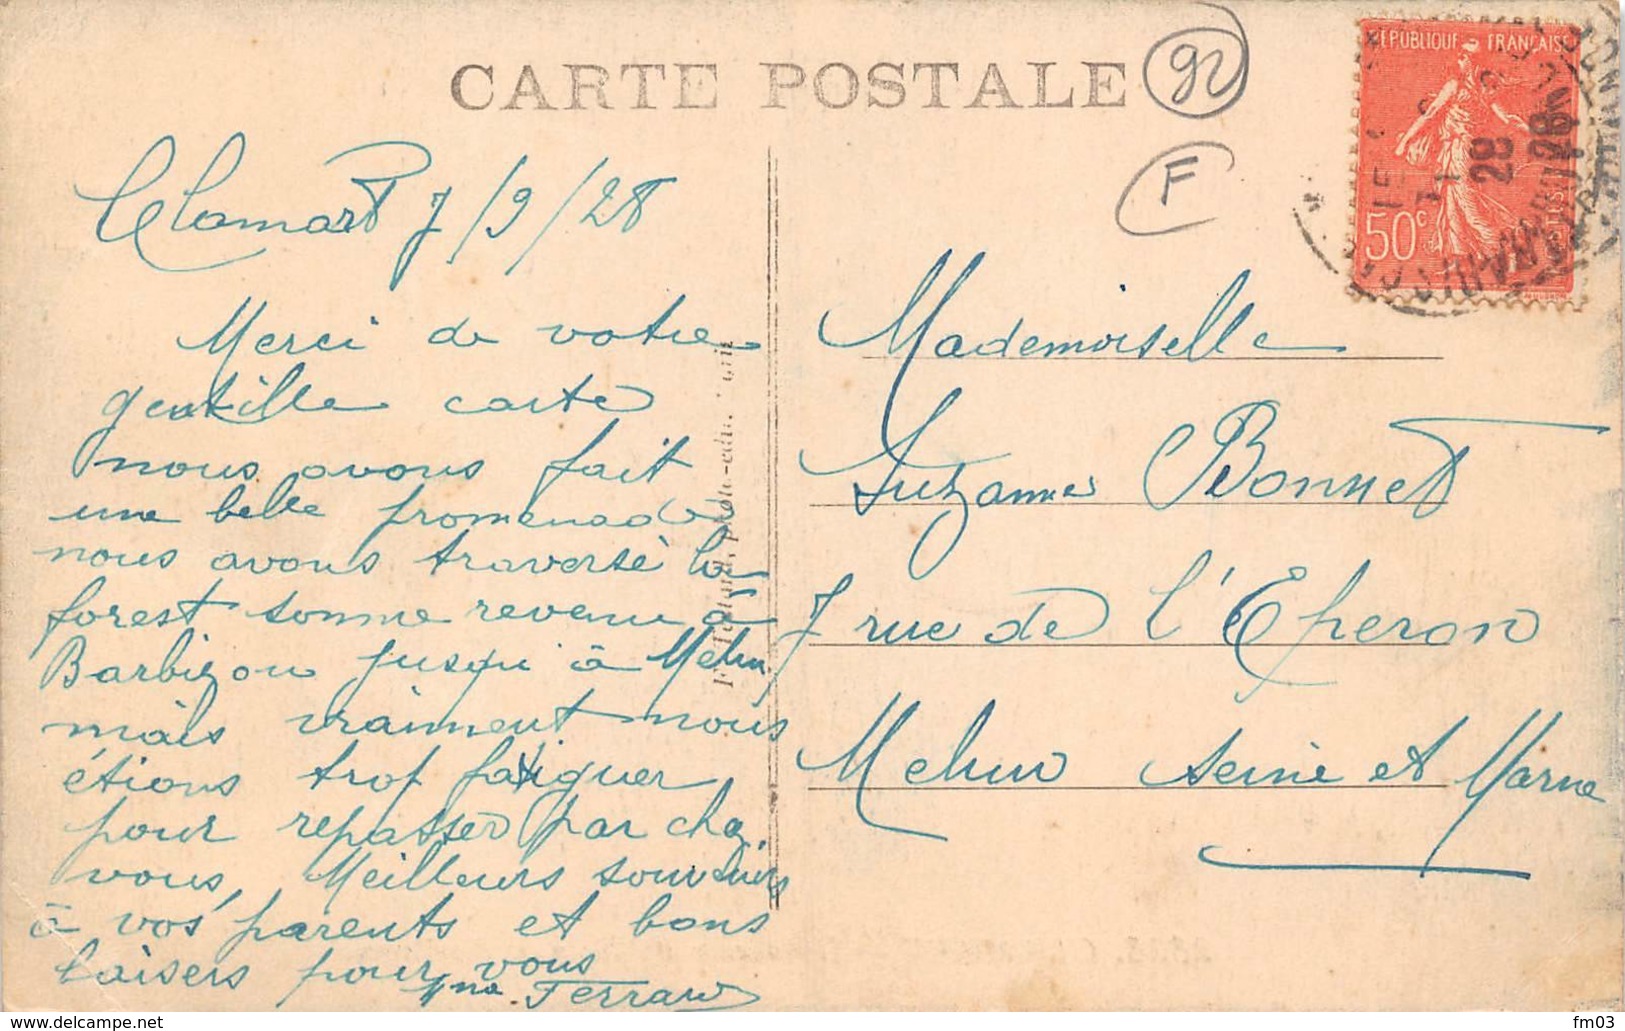 CARTE POSTALE
92
F
RÉPUBLIQUE FRANÇAISE
50c
28
Clamart 7/9/28
Merci de votre
gentille carte
nous avons fait
une belle promenade
nous avons traversé la
forest somme revenu à
Barbizon jusqu'à Melun
mais vraiment nous
étions trop fatiguer
pour repasser par chez
vous, Meilleurs souvenirs
à vos parents et bons
baisers pour vous
Mme Ferrand
Mademoiselle
Suzanne Bonnet
7 rue de l'Eperon
Melun Seine et Marne
fm03